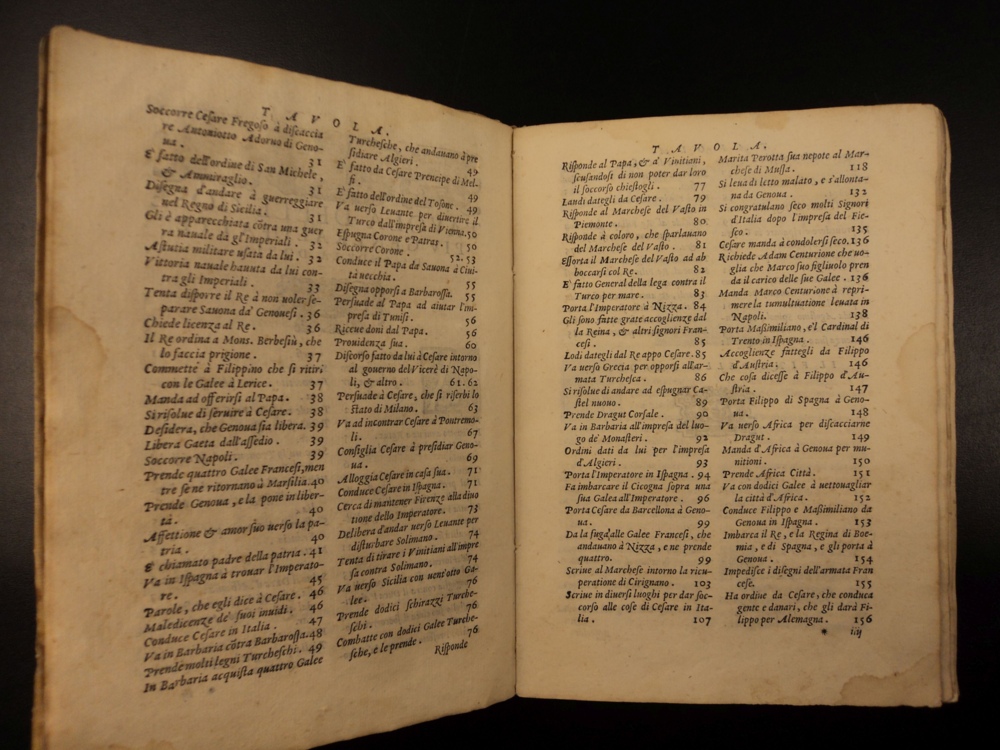 TAVOLA.
Soccorre Cesare Fregoso à discaccia
re Antoniotto Adorno di Geno-
ua. 31
È fatto dell'ordine di San Michele,
& Ammiraglio. 31
Disegna d'andare à guerreggiare
nel Regno di Sicilia. 31
Gli è apparecchiata cõtra una guer
ra nauale da gl'Imperiali. 32
Astutia militare usata da lui. 32
Vittoria nauale hauuta da lui con-
tra gli Imperiali. 33
Tenta disporre il Re à non uoler se-
parare Sauona da' Genouesi. 36
Chiede licenza al Re. 36
Il Re ordina a Mons. Berbesiù, che
lo faccia prigione. 37
Commette à Filippino che si ritiri
con le Galee à Lerice. 37
Manda ad offerirsi al Papa. 38
Si risolue di seruire à Cesare. 38
Desidera, che Genoua sia libera. 39
Libera Gaeta dall'assedio. 39
Soccorre Napoli. 39
Prende quattro Galee Francesi, men
tre se ne ritornano à Marsilia. 40
Prende Genoua, e la pone in liber-
tà. 40
Affettione & amor suo uerso la pa-
tria. 40
È chiamato padre della patria. 41
Va in Ispagna à trouar l'Imperato-
re. 45
Parole, che egli dice à Cesare. 46
Maledicenze de' suoi inuidi. 46
Conduce Cesare in Italia. 47
Va in Barbaria cõtra Barbarossa. 48
Prende molti legni Turcheschi. 49
In Barbaria acquista quattro Galee
Turchesche, che andauano à pre
sidiare Algieri. 49
È fatto da Cesare Prencipe di Mel-
fi. 49
È fatto dell'ordine del Tosone. 49
Va uerso Leuante per diuertire il
Turco dall'impresa di Vienna. 50
Espugna Corone e Patras. 50
Soccorre Corone. 52. 53
Conduce il Papa da Sauona à Ciui-
ta uecchia. 55
Disegna opporsi a Barbarossa. 55
Persuade al Papa ad aiutar l'im-
presa di Tunisi. 56
Riceue doni dal Papa. 56
Prouidenza sua. 60
Discorso fatto da lui à Cesare intorno
al gouerno del Vicerè di Napo-
li, & altro. 61. 62
Persuade à Cesare, che si riserbi lo
stato di Milano. 63
Va ad incontrar Cesare à Pontremo-
li. 67
Consiglia Cesare à presidiar Geno-
ua. 69
Alloggia Cesare in casa sua. 71
Conduce Cesare in Ispagna. 71
Cerca di mantener Firenze alla diuo
tione dello Imperatore. 73
Delibera d'andar uerso Leuante per
disturbare Solimano. 74
Tenta di tirare i Vinitiani all'impre
sa contra Solimano. 74
Va uerso Sicilia con uent'otto Ga-
lee. 76
Prende dodici schirazzi Turche-
schi. 76
Combatte con dodici Galee Turche-
sche, e le prende. 76
Risponde
TAVOLA.
Risponde al Papa, & a' Vinitiani,
scusandosi di non poter dar loro
il soccorso chiestogli. 77
Laudi dategli da Cesare. 79
Risponde al Marchese del Vasto in
Piemonte. 80
Risponde à coloro, che sparlauano
del Marchese del Vasto. 81
Essorta il Marchese del Vasto ad ab
boccarsi col Re. 82
E' fatto General della lega contra il
Turco per mare. 83
Porta l'Imperatore à Nizza. 84
Gli sono fatte grate accoglienze dal
la Reina, & altri signori Fran-
cesi. 85
Lodi dategli dal Re appo Cesare. 85
Va uerso Grecia per opporsi all'ar-
mata Turchesca. 86
Si risolue di andare ad espugnar Ca-
stel nuouo. 89
Prende Dragut Corsale. 90
Va in Barbaria all'impresa del luo-
go de' Monasteri. 92
Ordini dati da lui per l'impresa
d'Algieri. 93
Porta l'Imperatore in Ispagna. 94
Fa imbarcare il Cicogna sopra una
sua Galea all'Imperatore. 96
Porta Cesare da Barcellona à Geno-
ua. 99
Da la fuga alle Galee Francesi, che
andauano à Nizza, e ne prende
quattro. 99
Scriue al Marchese intorno la ricu-
peratione di Cirignano. 103
Scriue in diuersi luoghi per dar soc-
corso alle cose di Cesare in Ita-
lia. 107
Marita Perotta sua nepote al Mar-
chese di Mussa. 118
Si leua di letto malato, e s'allonta-
na da Genoua. 132
Si congratulano seco molti Signori
d'Italia dopo l'impresa del Fie-
sco. 135
Cesare manda à condolersi seco. 136
Richiede Adam Centurione che uo-
glia che Marco suo figliuolo pren
da il carico delle sue Galee. 136
Manda Marco Centurione à repri-
mere la tumultuatione leuata in
Napoli. 138
Porta Maßimiano, e'l Cardinal di
Trento in Ispagna. 146
Accoglienze fattegli da Filippo
d'Austria. 146
Che cosa dicesse à Filippo d'Au-
stria. 147
Porta Filippo di Spagna à Geno-
ua. 148
Va uerso Africa per discacciarne
Dragut. 149
Manda d'Africa à Genoua per mu-
nitioni. 150
Prende Africa Città. 151
Va con dodici Galee à uettouagliar
la città d'Africa. 152
Conduce Filippo e Maßimiano da
Genoua in Ispagna. 153
Imbarca il Re, e la Regina di Boe-
mia, e di Spagna, e gli porta à
Genoua. 154
Impedisce i disegni dell'armata Fran
cese. 155
Ha ordine da Cesare, che conduca
gente e danari, che gli darà Fi-
lippo per Alemagna. 156
iij